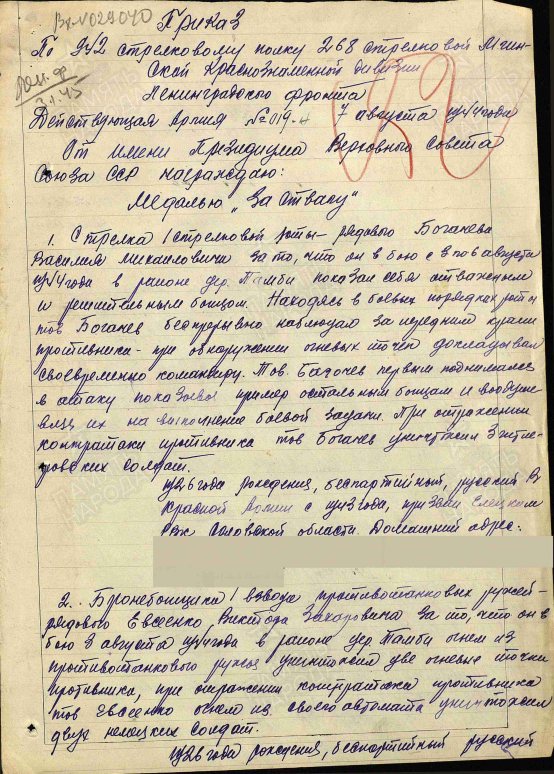 Вх. №029040
Приказ
По 942 стрелковому полку 268 стрелковой Мгин-
ской Краснознаменной дивизии
Ленинградского фронта
Действующая Армия №019-н 7 августа 1944 года
От имени Президиума Верховного Совета
Союза ССР награждаю:
Медалью "За отвагу"
1. Стрелка 1 стрелковой роты рядового Богачева
Василия Михайловича за то, что он в бою с 3 по 6 августа
1944 года в районе дер. Тамби показал себя отважным
и решительным бойцом. Находясь в боевых порядках роты
тов Богачев беспрерывно наблюдал за передним краем
противника - при обнаружении огневых точек докладывал
своевременно командиру. Тов. Богачев первым поднимался
в атаку показывая пример остальным бойцам и воодушев-
ляя их на выполнение боевой задачи. При отражении
контратаки противника тов Богачев уничтожил 3 гитле-
ровских солдат.
1926 года рождения, беспартийный, русский В
Красной Армии с 1943 года, призван Елецким
РВК Орловской области. Домашний адрес:
2. Бронебойщика 1 взвода противотанковых ружей-
рядового Евсеенко Виктора Захаровича за то, что он в
бою 3 августа 1944 года в районе дер Тамби огнем из
противотанкового ружья уничтожил две огневые точки
противника, при отражении контратаки противника
тов Евсеенко огнем из своего автомата уничтожил
двух немецких солдат.
1926 года рождения, беспартийный русский